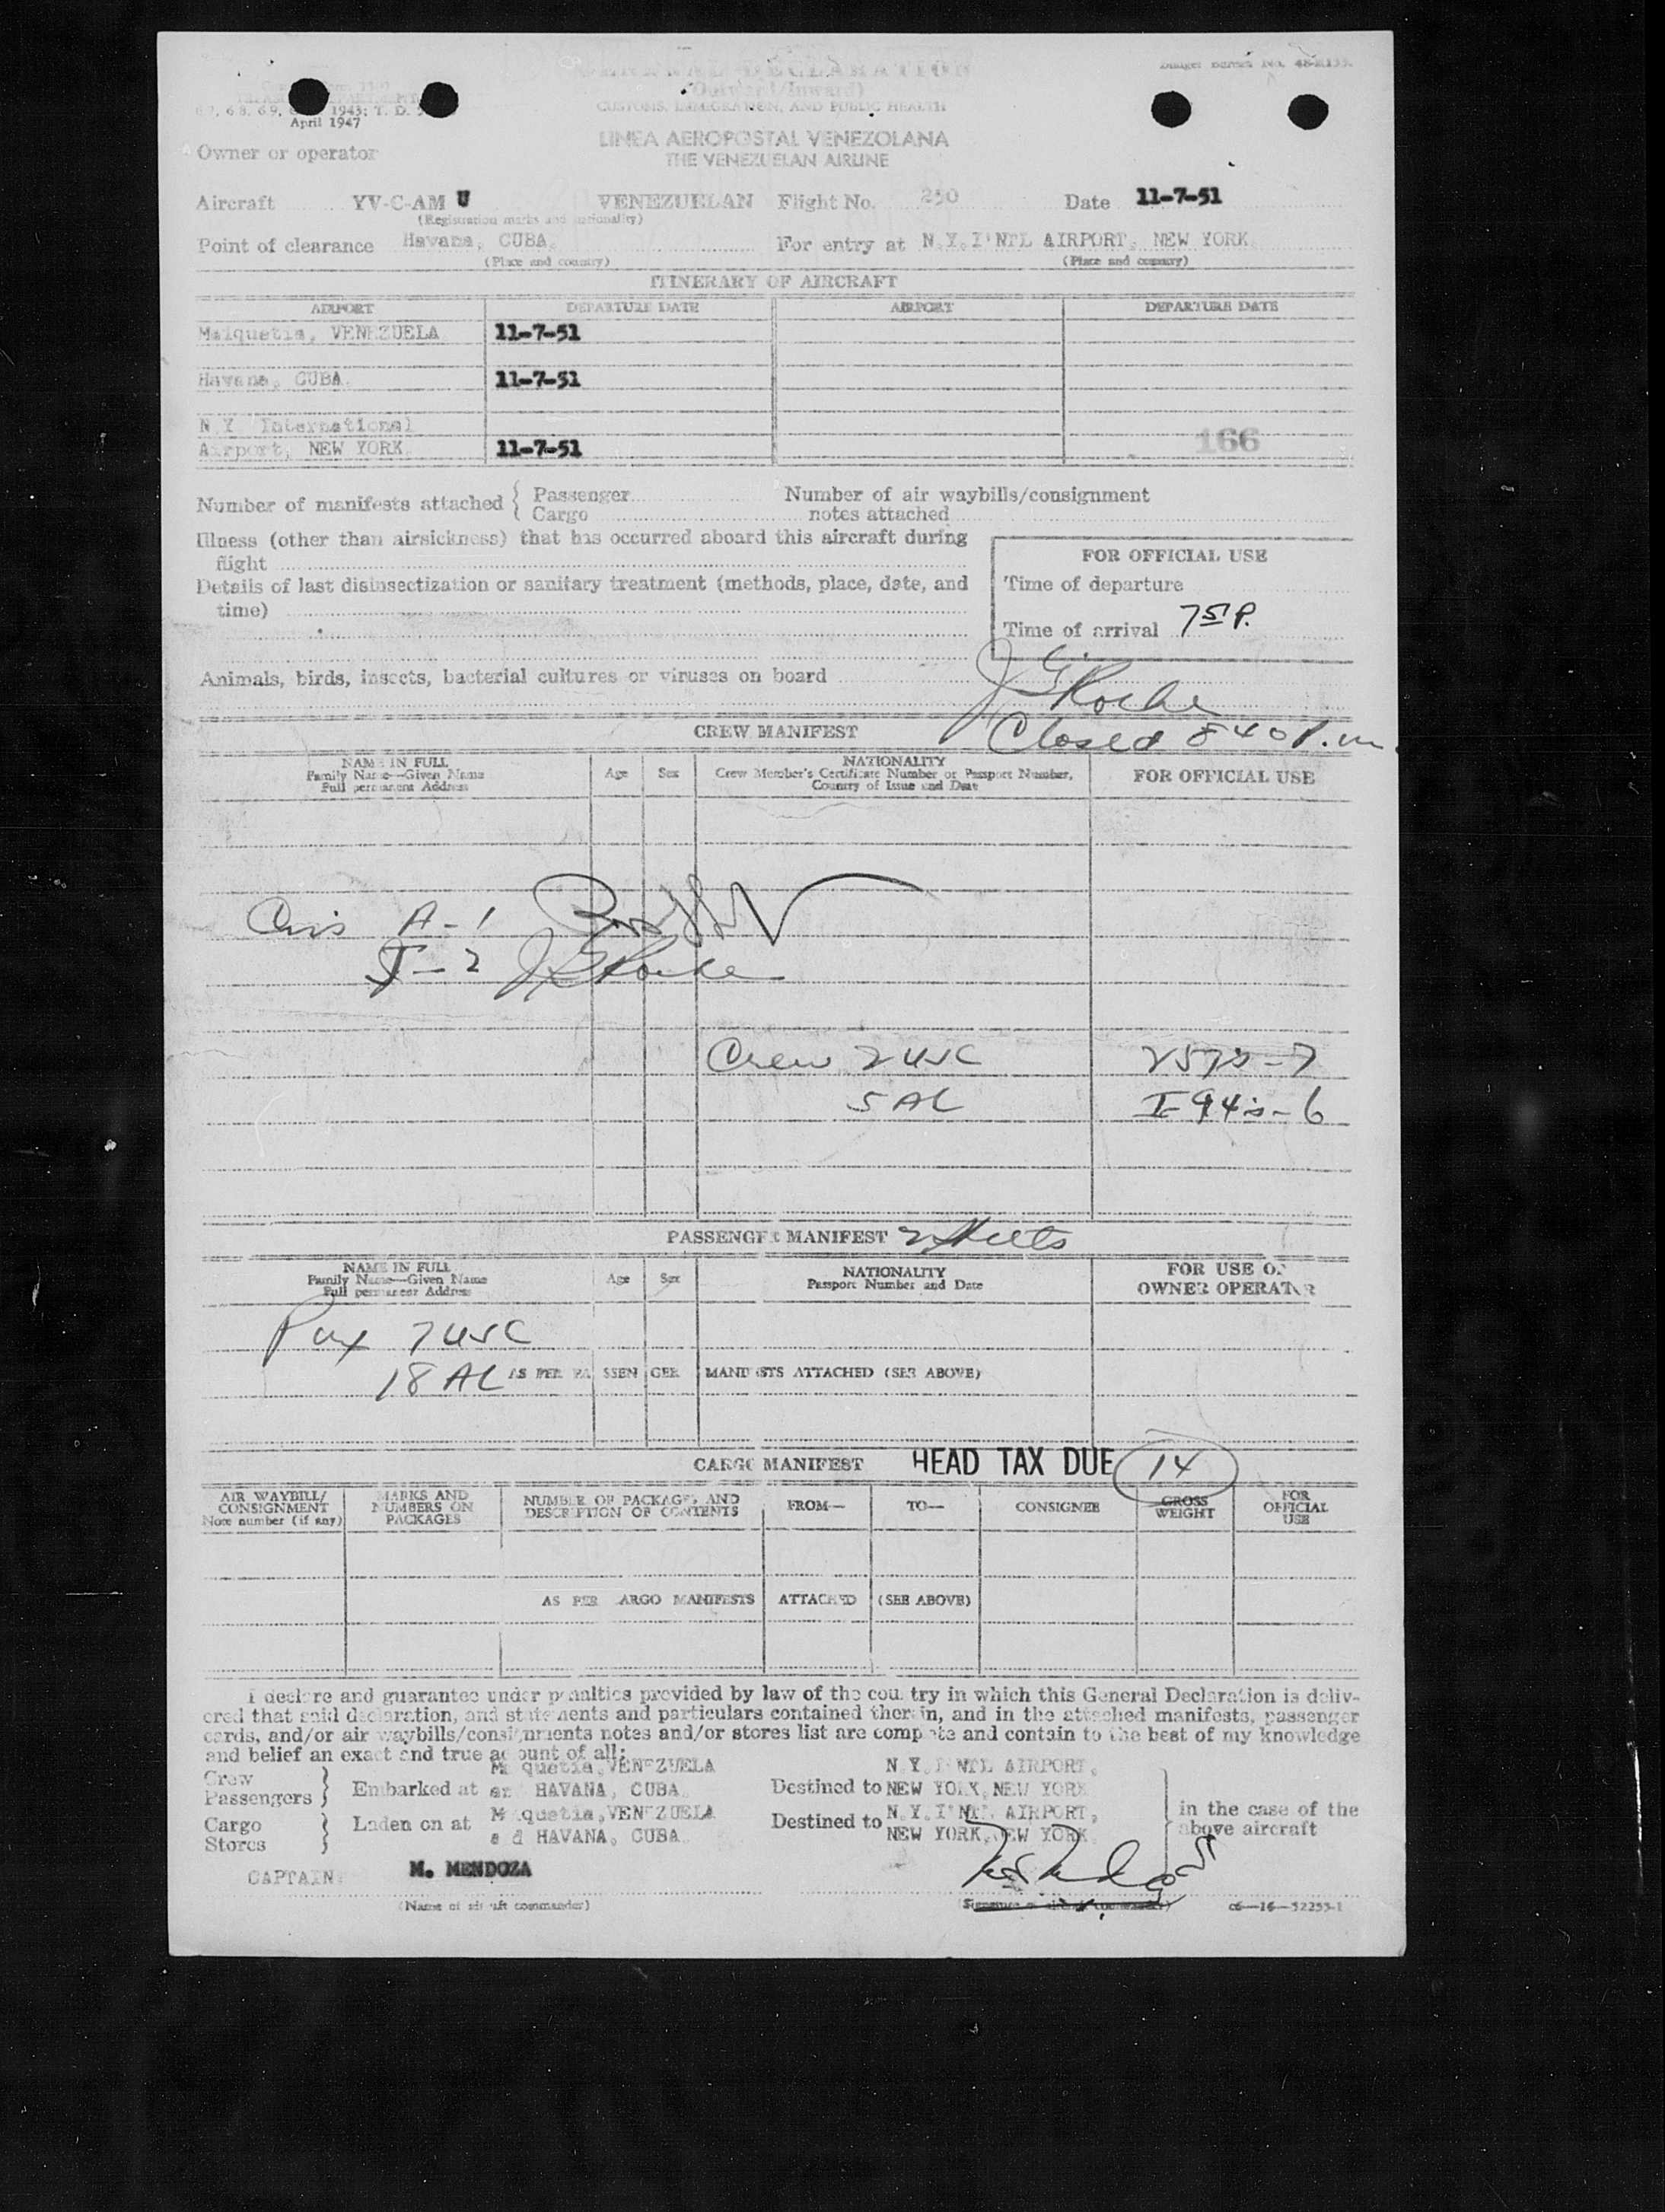 GENERAL DECLARATION
(Outward/Inward)
Budget Bureau No.
CUSTOMS, IMMIGRATION, AND PUBLIC HEALTH
6.7, 6.8, 6.9, 1943; T. D.
April 1947
LINEA AEROPOSTAL VENEZOLANA
THE VENEZUELAN AIRLINE
Owner or operator
Aircraft YV-C-AM U VENEZUELAN Flight No. 250 Date 11-7-51
(Registration marks and nationality)
Point of clearance Havana, CUBA. For entry at N.Y.I'NTL AIRPORT, NEW YORK.
(Place and country) (Place and country)
ITINERARY OF AIRCRAFT
AIRPORT DEPARTURE DATE AIRPORT DEPARTURE DATE
Maiquetia, VENEZUELA 11-7-51
Havana, CUBA. 11-7-51
N Y International
Airport, NEW YORK. 11-7-51 166
Number of manifests attached { Passenger Number of air waybills/consignment
Cargo notes attached
Illness (other than airsickness) that has occurred aboard this aircraft during
flight
FOR OFFICIAL USE
Details of last disinsectization or sanitary treatment (methods, place, date, and
time)
Time of departure
Time of arrival 7 51 P.
Animals, birds, insects, bacterial cultures or viruses on board
J G Roche
CREW MANIFEST Closed 8 40 P.m.
NAME IN FULL
Family Name—Given Name
Full permanent Address
Age Sex
NATIONALITY
Crew Member's Certificate Number or Passport Number,
Country of Issue and Date
FOR OFFICIAL USE
A-1
I-2 J G Roche
Crew 2 USC 257's-7
5 AL I-94's-6
PASSENGER MANIFEST 2 sheets
NAME IN FULL
Family Name—Given Name
Full permanent Address
Age Sex
NATIONALITY
Passport Number and Date
FOR USE OF
OWNER OPERATOR
Pax 7 USC
18 AL AS PER PASSENGER MANIFESTS ATTACHED (SEE ABOVE)
CARGO MANIFEST HEAD TAX DUE 14
AIR WAYBILL/
CONSIGNMENT
Note number (if any)
MARKS AND
NUMBERS ON
PACKAGES
NUMBER OF PACKAGES AND
DESCRIPTION OF CONTENTS
FROM— TO— CONSIGNEE
GROSS
WEIGHT
FOR
OFFICIAL
USE
AS PER CARGO MANIFESTS ATTACHED (SEE ABOVE)
I declare and guarantee under penalties provided by law of the country in which this General Declaration is deliv-
ered that said declaration, and statements and particulars contained therein, and in the attached manifests, passenger
cards, and/or air waybills/consignments notes and/or stores list are complete and contain to the best of my knowledge
and belief an exact and true account of all:
Crew
Passengers } Embarked at Maiquetia, VENEZUELA
and HAVANA, CUBA. Destined to N.Y.I'NTL AIRPORT,
NEW YORK, NEW YORK
Cargo
Stores } Laden on at Maiquetia, VENEZUELA
and HAVANA, CUBA. Destined to N.Y.I'NTL AIRPORT,
NEW YORK, NEW YORK. in the case of the
above aircraft
CAPTAIN: M. MENDOZA
(Name of aircraft commander) (Signature of aircraft commander) c6—16—52255-1